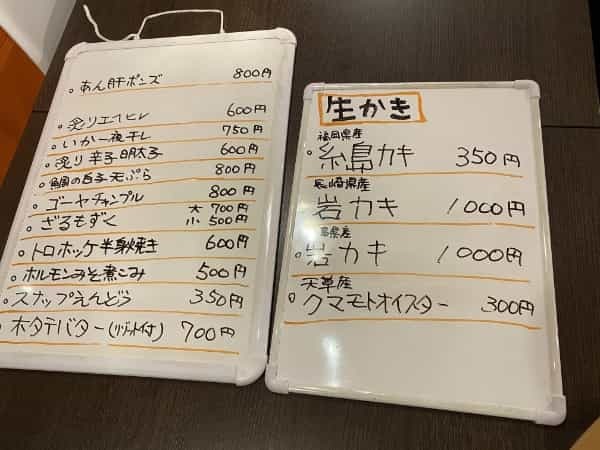 あん肝ポンズ 800円
炙りエイヒレ 600円
いか一夜干し 750円
炙り辛子明太子 600円
鯛の白子天ぷら 800円
ゴーヤチャンプル 800円
ざるもずく 大700円 小500円
トロホッケ半身焼き 600円
ホルモンみそ煮こみ 500円
スナップえんどう 350円
ホタテバター(リゾット付) 700円
生かき
福岡県産
糸島カキ 350円
長崎県産
岩カキ 1000円
島県産
岩カキ 1000円
天草産
クマモトオイスター 300円